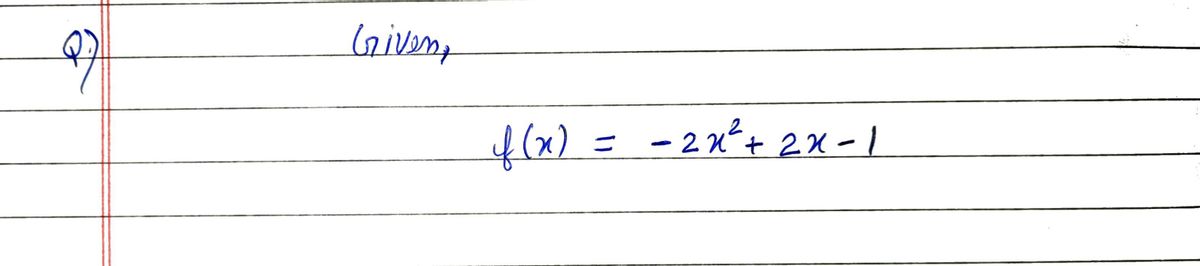 Q.) Given,
f(x) = -2x² + 2x - 1